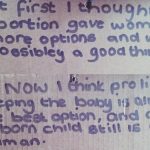 t first I though
portion gave wom
more options and w
possibley a good thi
NOW I think pro li
ping the baby is al
best option, and
born child still is
man.